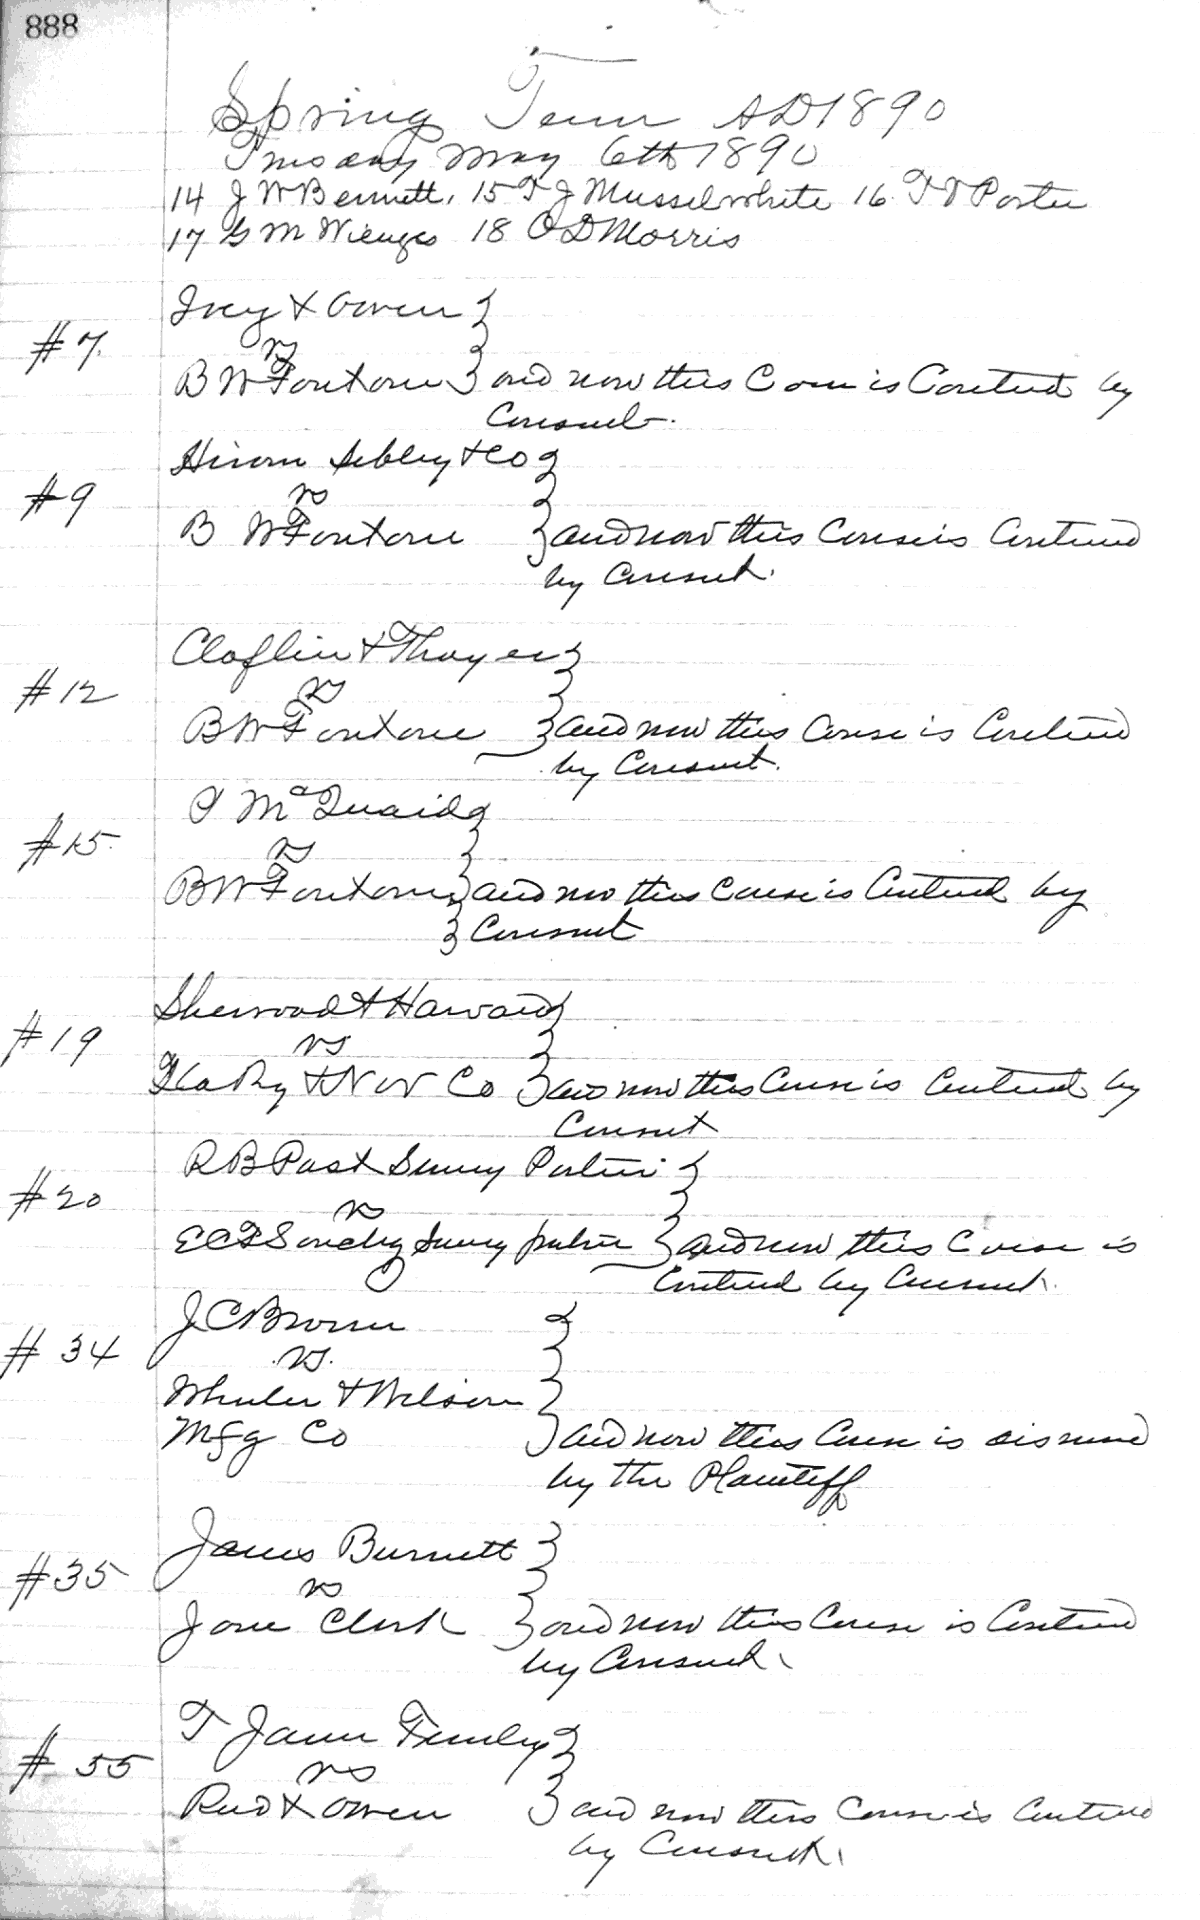 888
Spring Term AD 1890
Tuesday May 6th 1890
14 J W Bennett, 15 T J Musselwhite 16 T V Porter
17 G M Wienges 18 O D Morris
Ivey & Owen
#7.
vs
B W Fontane and now this Cause is Contind by
Consent.
Hiram Sibley & Co
#9
vs
B W Fontane and now this Cause is Continud
by Consent.
Claflin & Thayer
#12
vs
B W Fontane and now this Cause is Continud
by Consent.
P McQuaid
#15
vs
B W Fontane and now this Cause is Continud by
Consent
Sherwood & Haward
#19
vs
Fla Ry & N Co and now this Cause is Continud by
Consent
R B Post Surv
#20
vs
Surv and now this Cause is
Continud by Consent.
J C Brown
#34
vs.
Wheeler & Wilson
Mfg Co and now this Cause is dismised
by the Plaintiff
James Burnett
#35
vs
Jane Clark and now this Cause is Continud
by Consent.
T James
#55
vs
& Owen and now this Cause is Continud
by Consent.